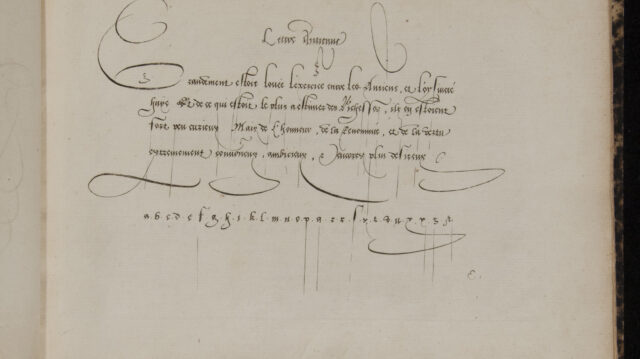 Lettre
Grandement estoit loué l'exercice entre les Anciens, et l'oysiveté
haye. Et de ce qui estoit le plus a estimer des Richesses, ilz en estoient
fort peu curieux. Mais de l'honneur, de la Renommée, et de la vertu
extremement convoiteux, ambitieux, & plus desireux
a b c d e f g h i k l m n o p q r s